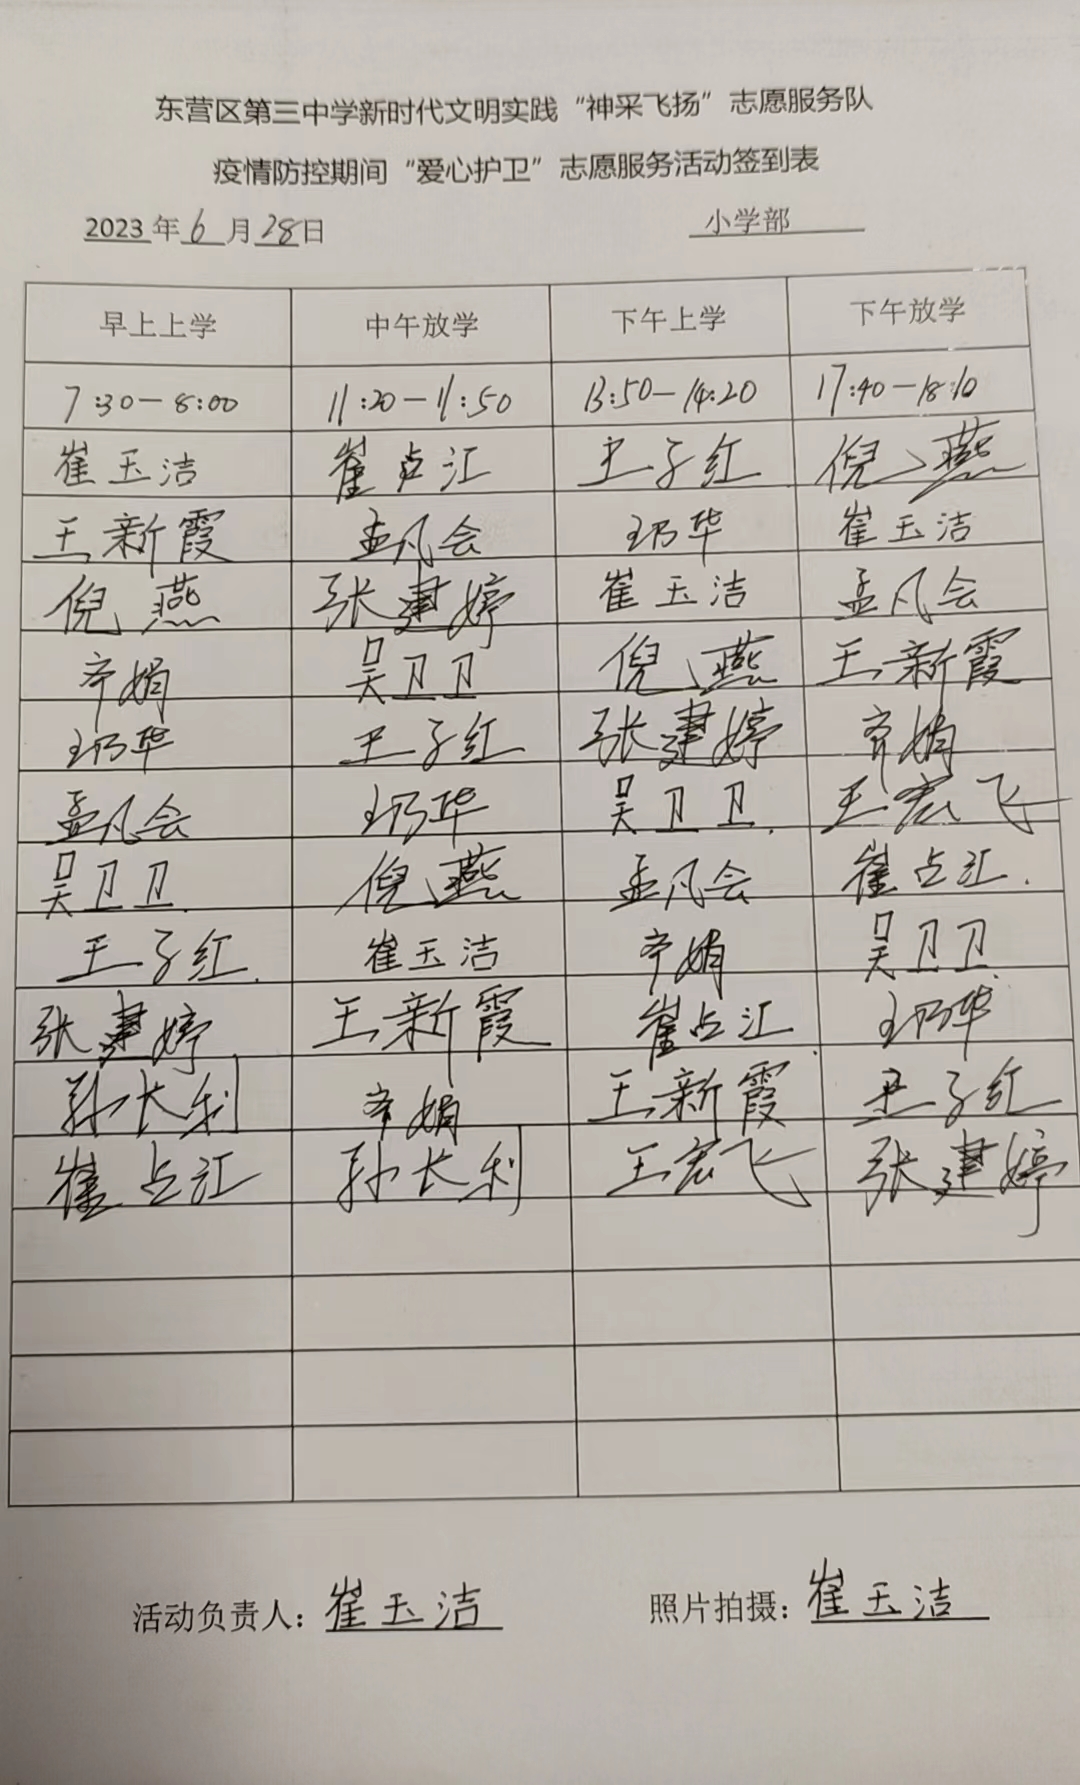 东营区第三中学新时代文明实践“神采飞扬”志愿服务队
疫情防控期间“爱心护卫”志愿服务活动签到表
2023年6月28日 小学部
早上上学 中午放学 下午上学 下午放学
7:30-8:00 11:20-11:50 13:50-14:20 17:40-18:10
崔玉洁 崔占汇 王子红 倪燕
王新霞 孟凡会 崔玉洁
倪燕 张建婷 崔玉洁 孟凡会
齐娟 吴卫卫 倪燕 王新霞
王子红 张建婷 齐娟
孟凡会 吴卫卫 王宏飞
吴卫卫 倪燕 孟凡会 崔占汇
王子红 崔玉洁 齐娟 吴卫卫
张建婷 王新霞 崔占汇
孙长利 齐娟 王新霞 王子红
崔占汇 孙长利 王宏飞 张建婷
活动负责人：崔玉洁 照片拍摄：崔玉洁